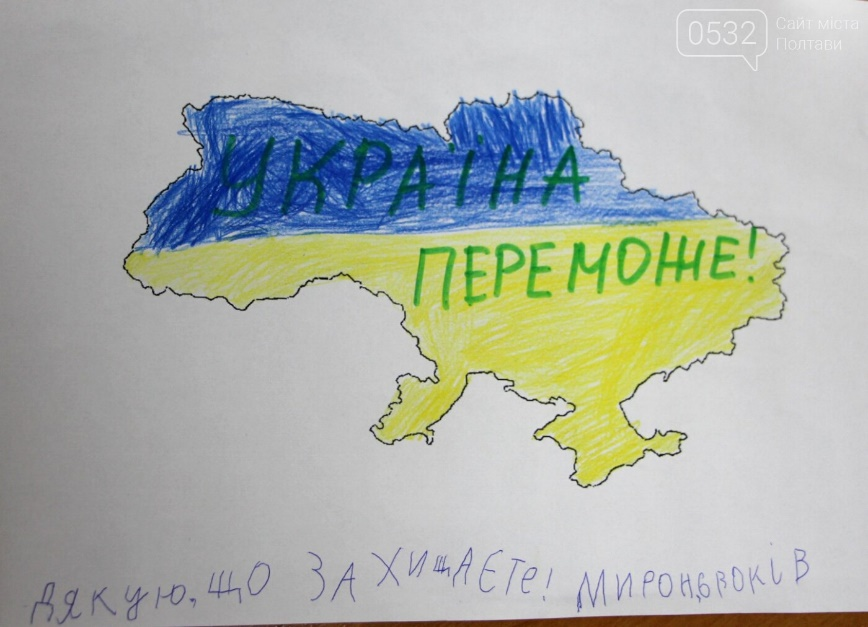 0532
Сайт міста
Полтави
УКРАЇНА
ПЕРЕМОЖЕ!
ДЯКУЮ, ЩО ЗАХИЩАЄТЕ! МИРОН, 6 РОКІВ